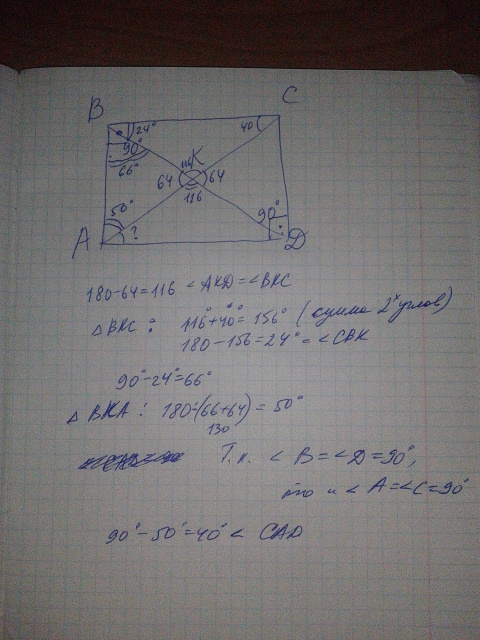 B
C
24°
40
90°
66°
K
64
64
116
50°
?
90°
A
D
180-64=116 <AKD=<BKC
△BKC: 116°+40°=156° (сумма 2х углов)
180-156=24°=<CBK
90°-24°=66°
△BKA: 180-(66+64)=50°
130°
Т.к. <B=<D=90°,
то и <A=<C=90°
90°-50°=40°< CAD